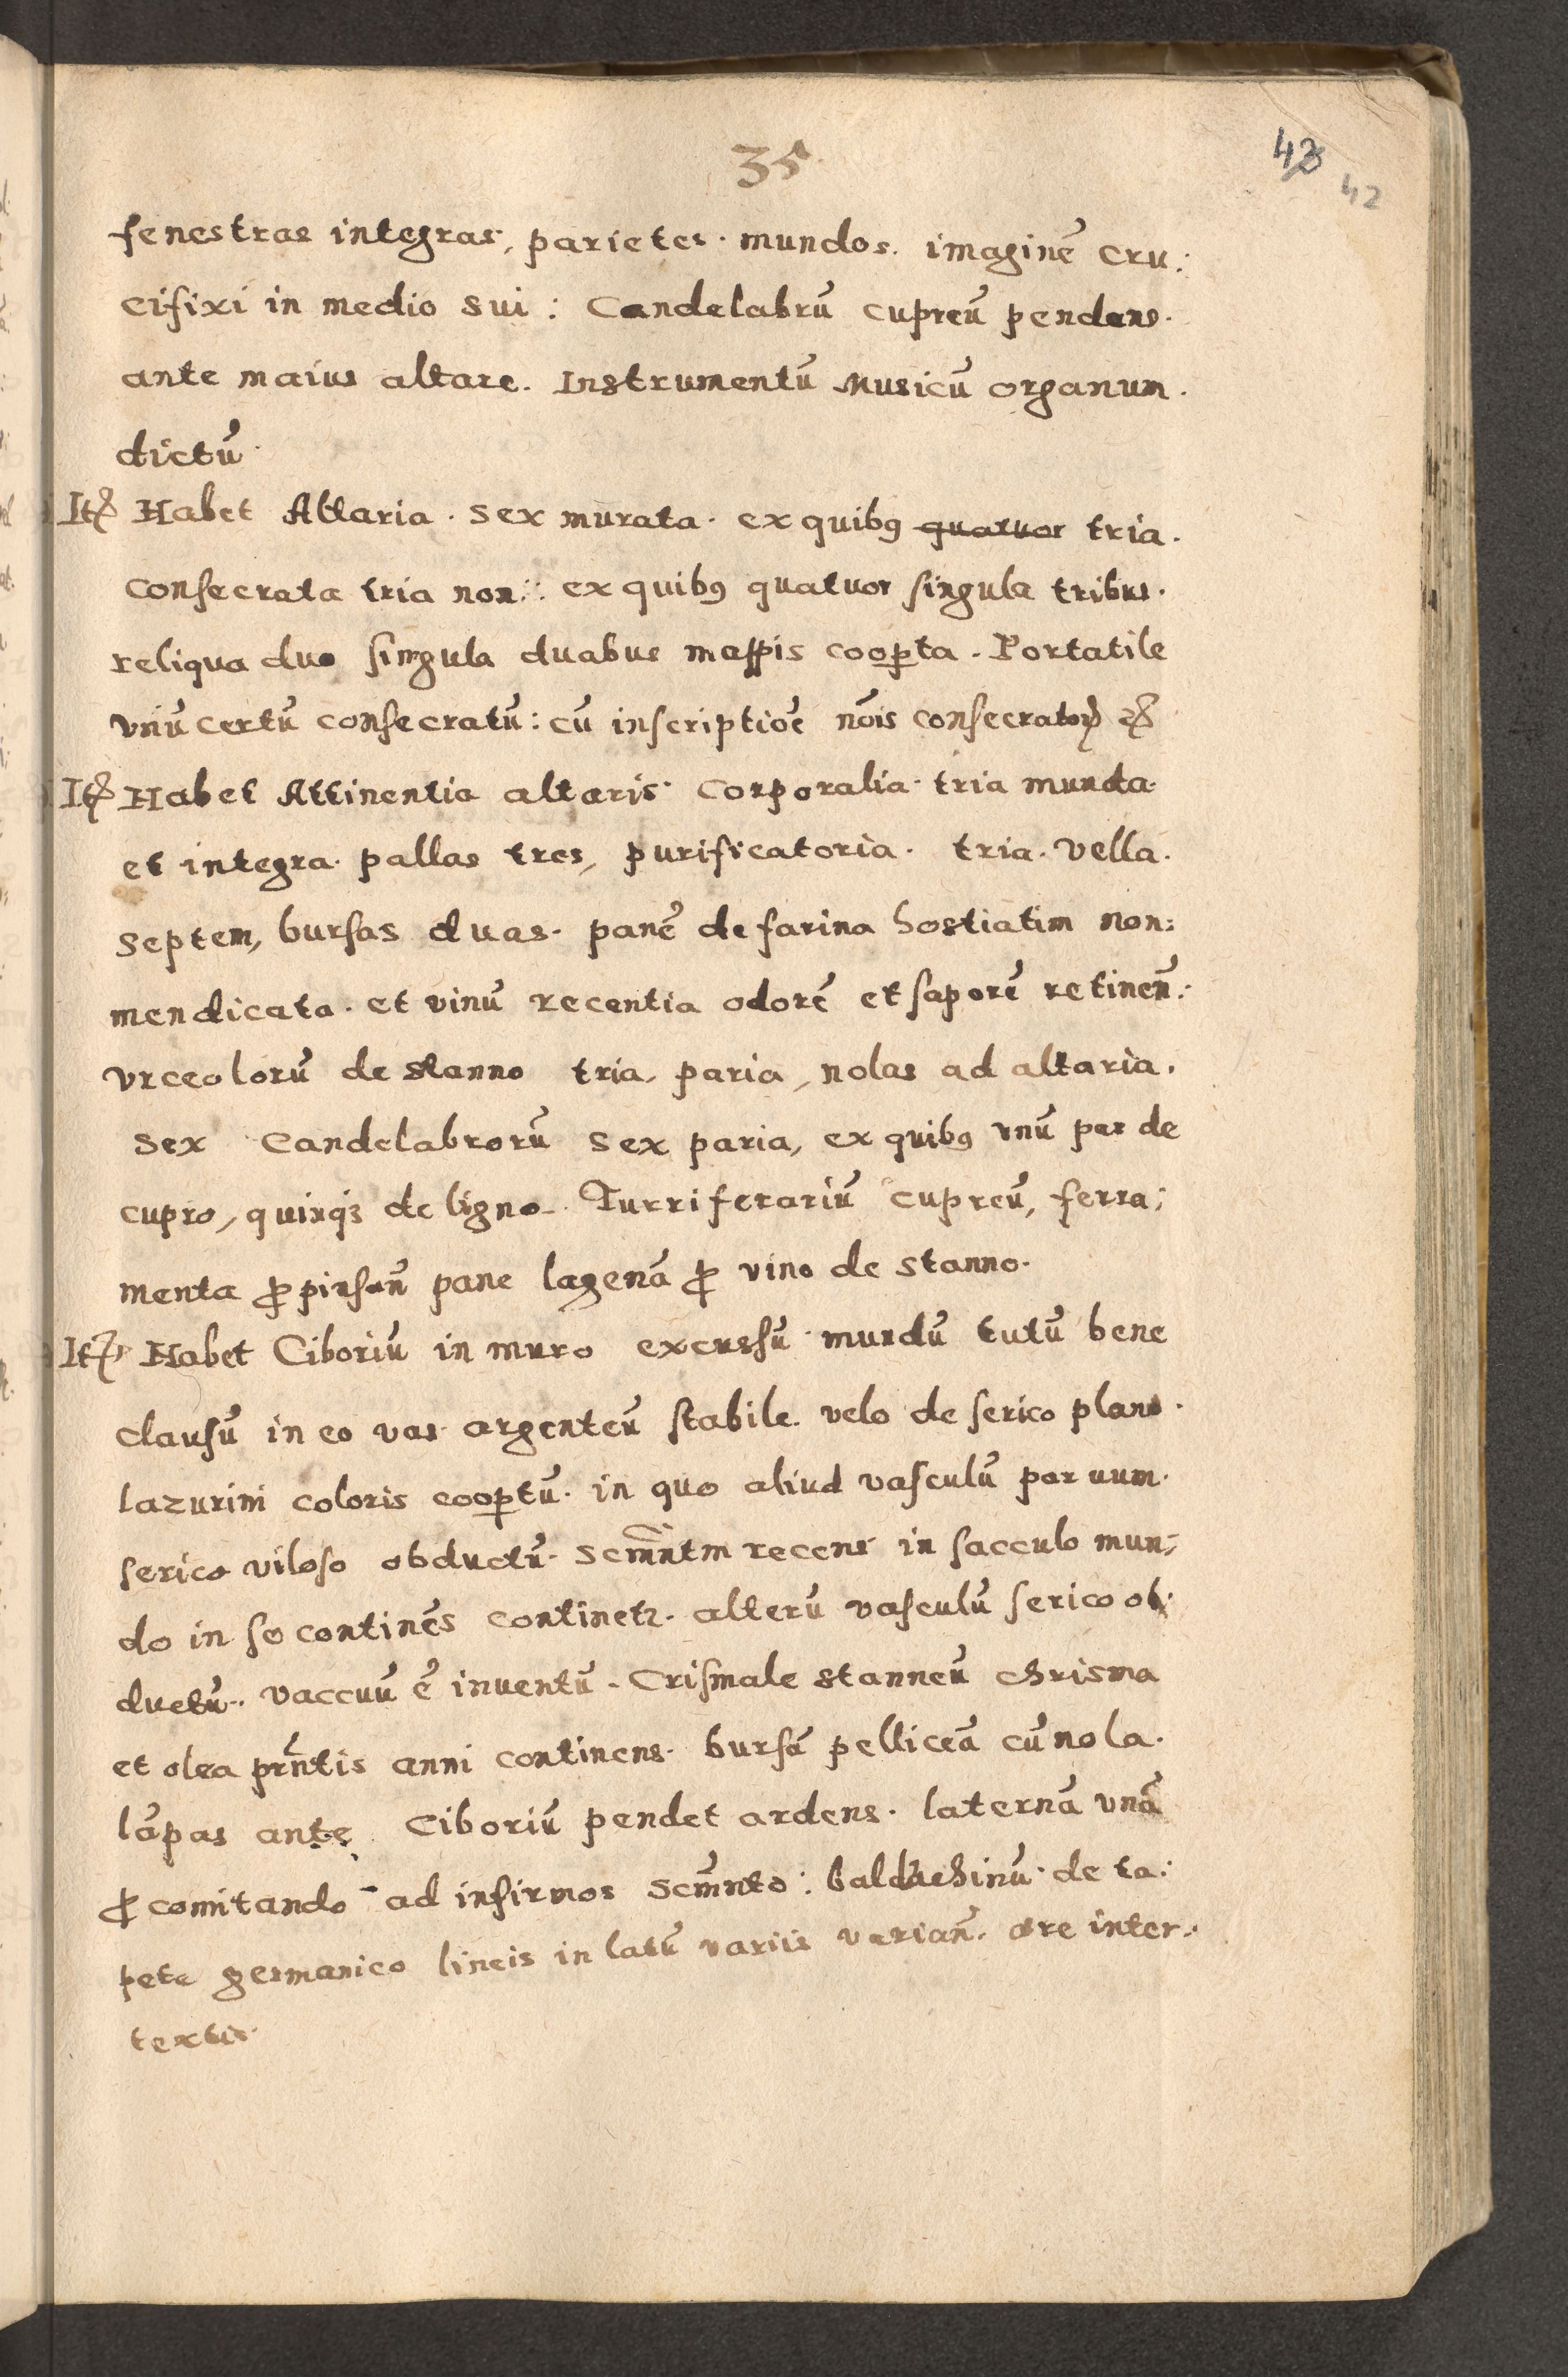 35
43
42
fenestras integras, parietes. mundos. imaginē cru:
cifixi in medio sui: Candelabrū cupreū pendens.
ante maius altare. Instrumentū Musicū organum.
dictū.
Itꝫ Habet Altaria. sex murata. ex quibꝰ quatuor tria.
consecrata tria non: ex quibꝰ quatuor singula tribus.
reliqua duo singula duabus mappis coop̱ta. Portatile
vnū certū consecratū: cū inscriptiōe nōis consecratorꝭ
Itꝫ Habet Attinentia altaris. Corporalia tria munda.
et integra. pallas tres, purificatoria. tria. Vella.
septem, bursas duas. panē de farina hostiatim non:
mendicata. et vinū recentia odorē et saporē retineñ:
vrceolorū de stanno tria, paria, nolas ad altaria.
sex Candelabrorū sex paria, ex quibꝰ vnū par de
cupro, quinqꝫ de ligno. Turriferariū cupreū, ferra:
menta ꝓ pinsañ pane lagenā ꝓ vino de stanno.
Itꝫ Habet Ciboriū in muro excussū mundū tutū bene
clausū in eo vas argenteū stabile. velo de serico plano.
lazurini coloris coop̱tū. in quo aliud vasculū paruum.
serico viloso obductū. scm̄ntm recens in sacculo mun:
do in se continēs continetꝛ. alterū vasculū serico ob:
ductū. vaccuū ē inuentū. Crismale stanneū chrisma
et olea prn̄tis anni continens. bursā pelliceā cū nola.
lāpas ante Ciboriū pendet ardens. laternā vnā
ꝓ comitando ad infirmos scm̄nto: baldachinū. de ta:
pete germanico lineis in latū variis variañ. inter:
textis.